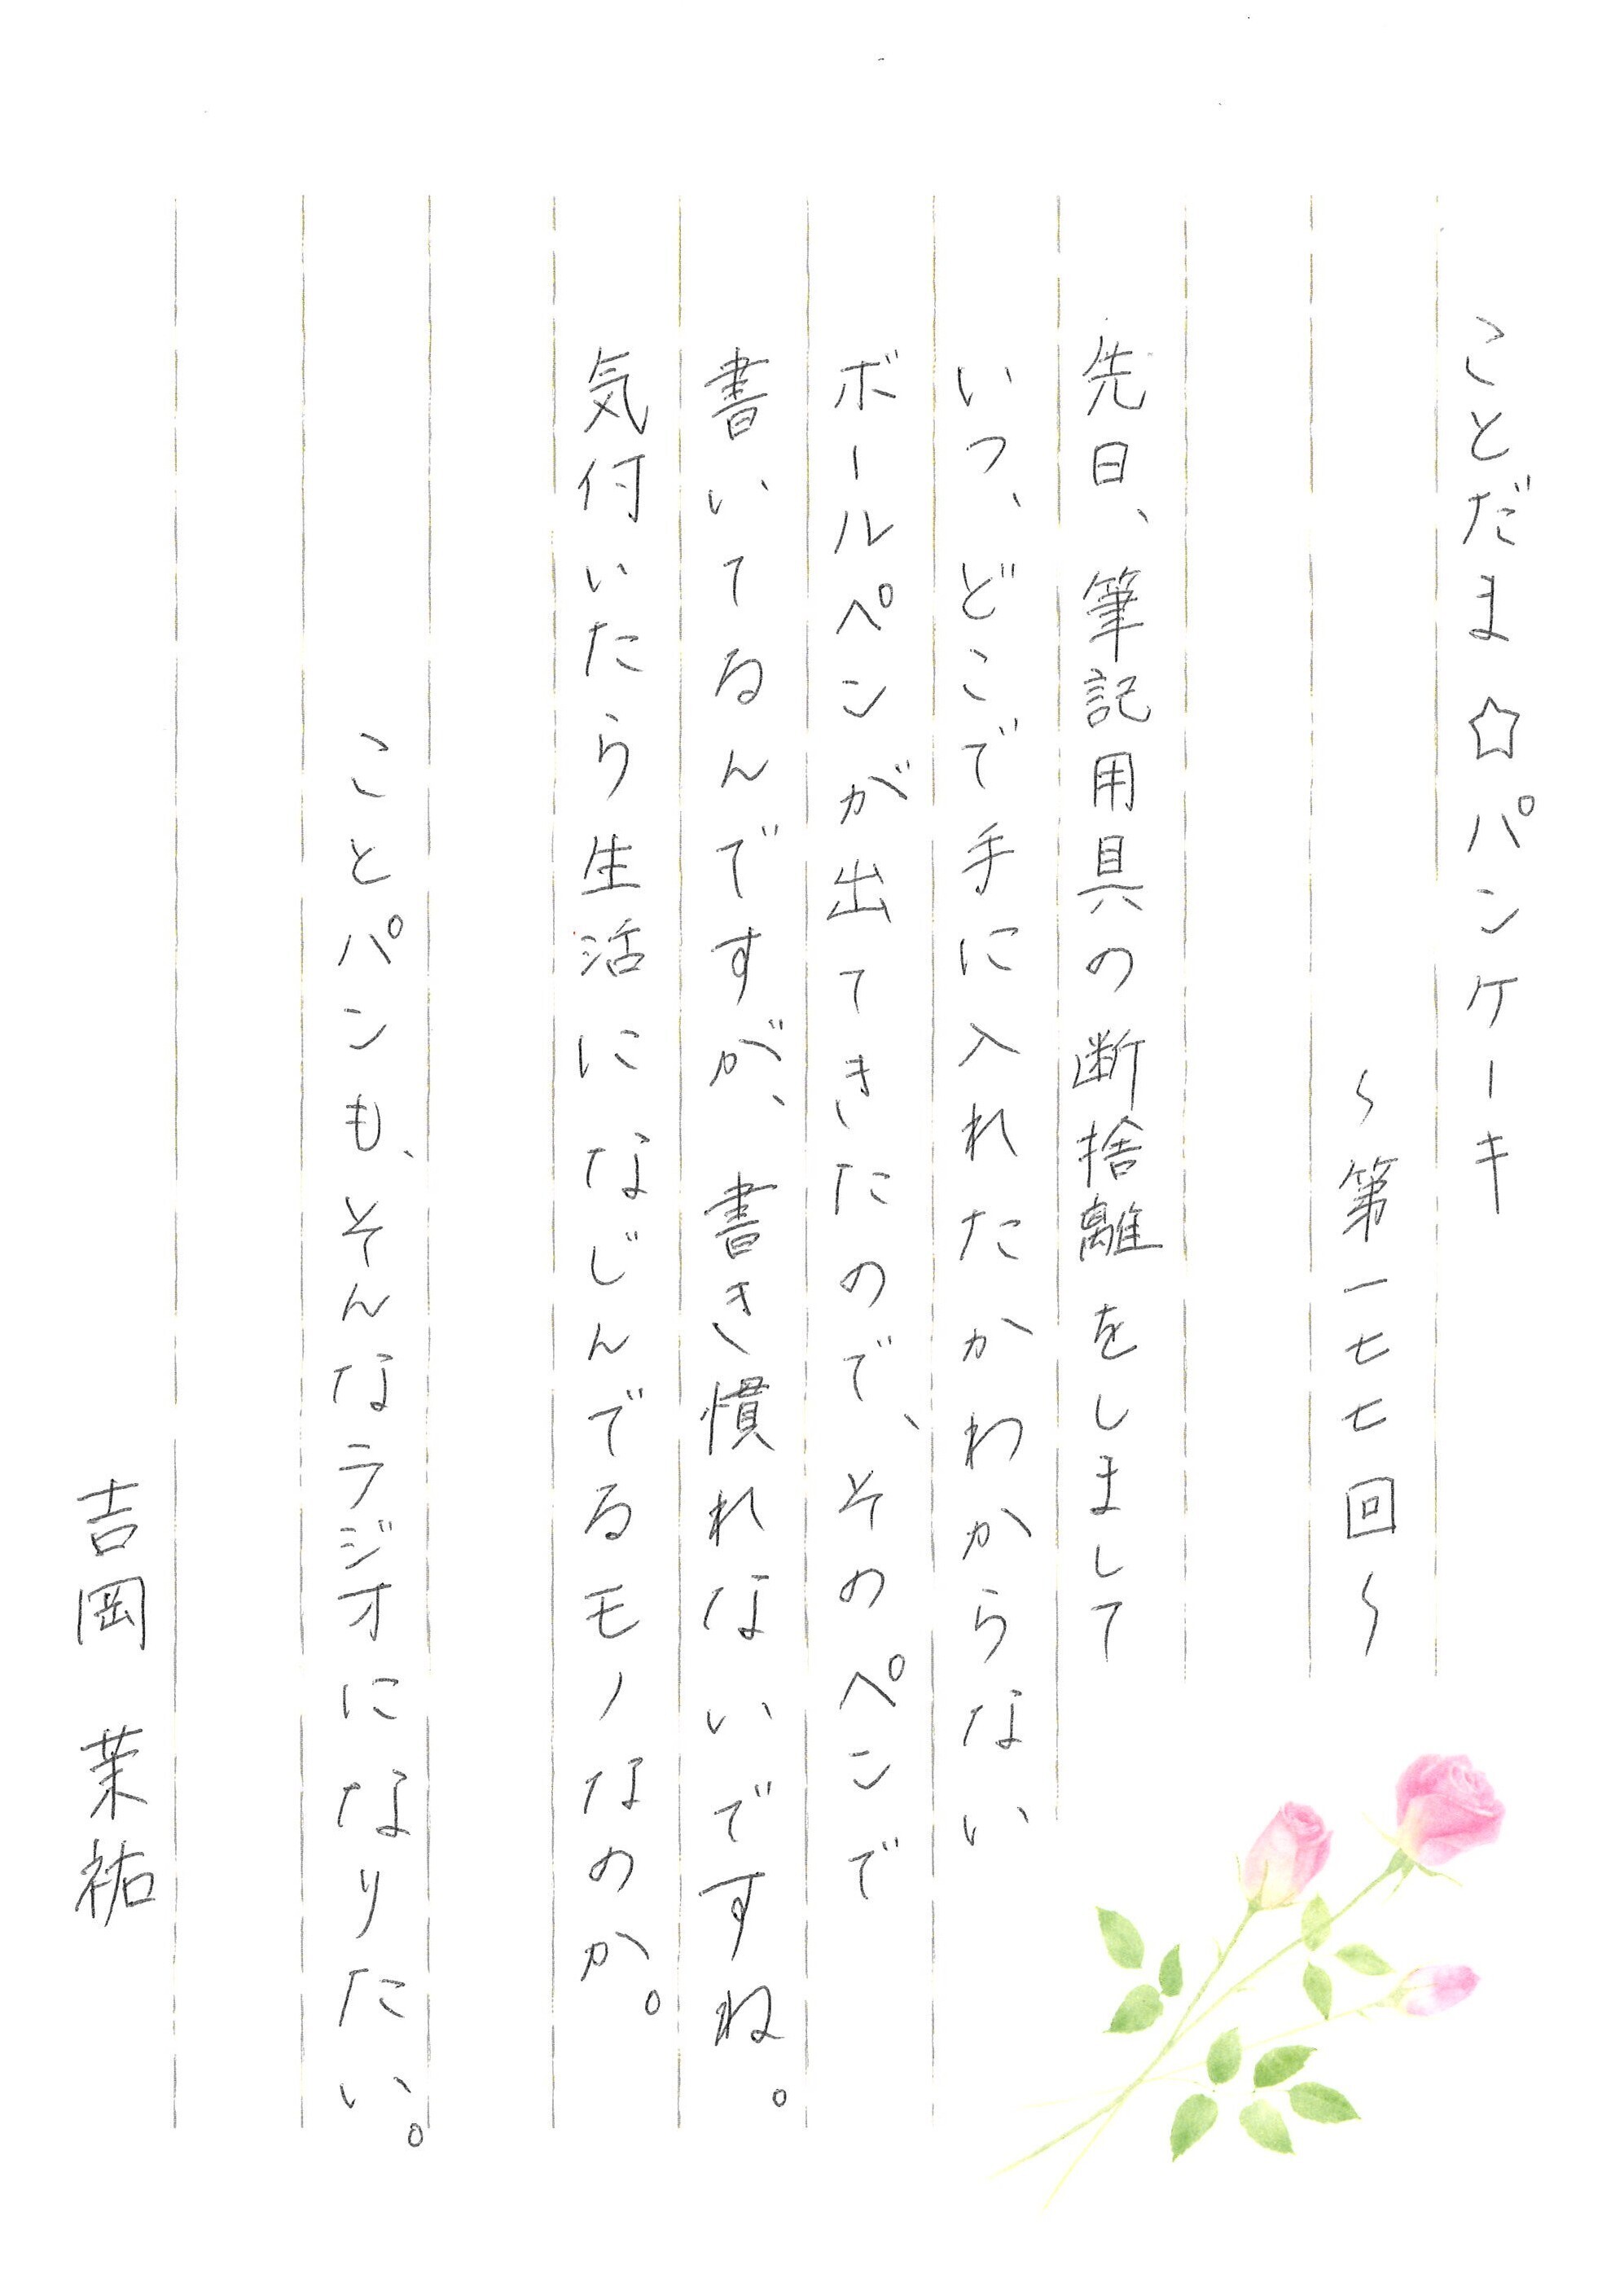 ことだま☆パンケーキ
〜第一七七回〜
先日、筆記用具の断捨離をしまして
いつ、どこで手に入れたかわからない
ボールペンが出てきたので、そのペンで
書いてるんですが、書き慣れないですね。
気付いたら生活になじんでるモノなのか。
ことパンも、そんなラジオになりたい。
吉岡 茉祐